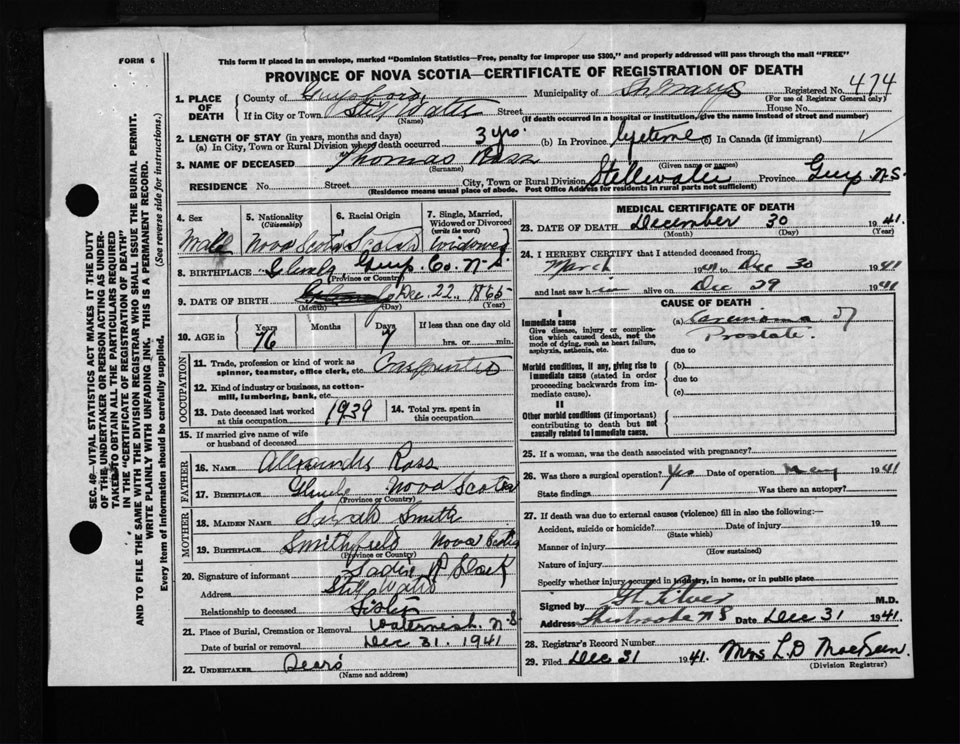 FORM 6
This form if placed in an envelope, marked "Dominion Statistics—Free, penalty for improper use $300," and properly addressed will pass through the mail "FREE"
PROVINCE OF NOVA SCOTIA—CERTIFICATE OF REGISTRATION OF DEATH
Registered No. 474
(For use of Registrar General only)
1. PLACE OF DEATH
County of Guysboro, Municipality of St. Marys
If in City or Town Still Water Street House No.
(Name) (If death occurred in a hospital or institution, give the name instead of street and number)
2. LENGTH OF STAY (in years, months and days)
(a) In City, Town or Rural Division where death occurred 3 yrs. (b) In Province lifetime (c) In Canada (if immigrant)
3. NAME OF DECEASED Thomas Ross
(Surname) (Given name or names)
RESIDENCE No. Street City, Town or Rural Division Stillwater Province Guys N.S.
(Residence means usual place of abode. Post Office Address for residents in rural parts not sufficient)
4. Sex Male
5. Nationality (Citizenship) Nova Scotia
6. Racial Origin Scotch
7. Single, Married, Widowed or Divorced (write the word) Widowed
8. BIRTHPLACE Glenelg Guys. Co. N.S.
(Province or Country)
9. DATE OF BIRTH Dec. 22, 1865
(Month) (Day) (Year)
10. AGE in Years 76 Months Days 7 If less than one day old hrs. or min.
OCCUPATION
11. Trade, profession or kind of work as spinner, teamster, office clerk, etc. Carpenter
12. Kind of industry or business, as cotton-mill, lumbering, bank, etc.
13. Date deceased last worked at this occupation 1939
14. Total yrs. spent in this occupation
15. If married give name of wife or husband of deceased
FATHER
16. NAME Alexander Ross
17. BIRTHPLACE Glenelg Nova Scotia
(Province or Country)
MOTHER
18. MAIDEN NAME Sarah Smith
19. BIRTHPLACE Smithfield Nova Scotia
(Province or Country)
20. Signature of informant Sadie R
Address Still Water
Relationship to deceased Sister
21. Place of Burial, Cremation or Removal Waternish N.S.
Date of burial or removal Dec 31, 1941
22. UNDERTAKER Sears
(Name and address)
MEDICAL CERTIFICATE OF DEATH
23. DATE OF DEATH December 30 1941.
(Month) (Day) (Year)
24. I HEREBY CERTIFY that I attended deceased from:
March 1941 to Dec 30 1941
and last saw him alive on Dec 29 1941
CAUSE OF DEATH
I
Immediate cause
Give disease, injury or complication which caused death, not the mode of dying, such as heart failure, asphyxia, asthenia, etc.
(a) Carcinoma of Prostate.
due to
Morbid conditions, if any, giving rise to immediate cause (stated in order proceeding backwards from immediate cause).
(b)
due to
(c)
II
Other morbid conditions (if important) contributing to death but not causally related to immediate cause.
25. If a woman, was the death associated with pregnancy?
26. Was there a surgical operation? Yes Date of operation May 1941
State findings Was there an autopsy?
27. If death was due to external causes (violence) fill in also the following:—
Accident, suicide or homicide? Date of injury 19
(State which)
Manner of injury
(How sustained)
Nature of injury
Specify whether injury occurred in industry, in home, or in public place
Signed by Silver M.D.
Address Sherbrooke N S Date Dec 31 1941.
28. Registrar's Record Number
29. Filed Dec 31 1941. Mrs L. D MacKeen
(Division Registrar)
SEC. 48—VITAL STATISTICS ACT MAKES IT THE DUTY
OF THE UNDERTAKER OR PERSON ACTING AS UNDER-
TAKER TO OBTAIN ALL THE PARTICULARS REQUIRED
IN THE "CERTIFICATE OF REGISTRATION OF DEATH"
AND TO FILE THE SAME WITH THE DIVISION REGISTRAR WHO SHALL ISSUE THE BURIAL PERMIT.
WRITE PLAINLY WITH UNFADING INK. THIS IS A PERMANENT RECORD.
Every item of information should be carefully supplied. (See reverse side for instructions.)